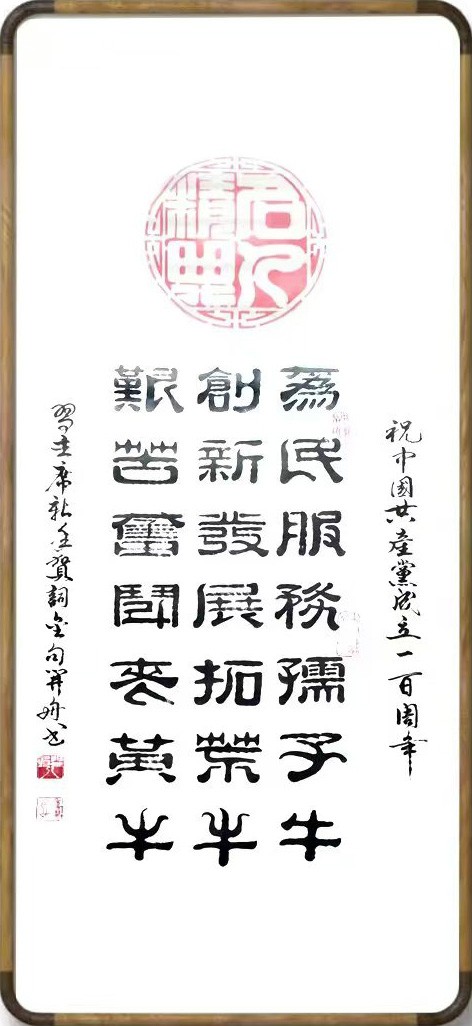 名人
精典
祝中國共產黨成立一百周年
爲民服務孺子牛
創新發展拓荒牛
艱苦奮鬥老黃牛
習主席新年賀詞金句